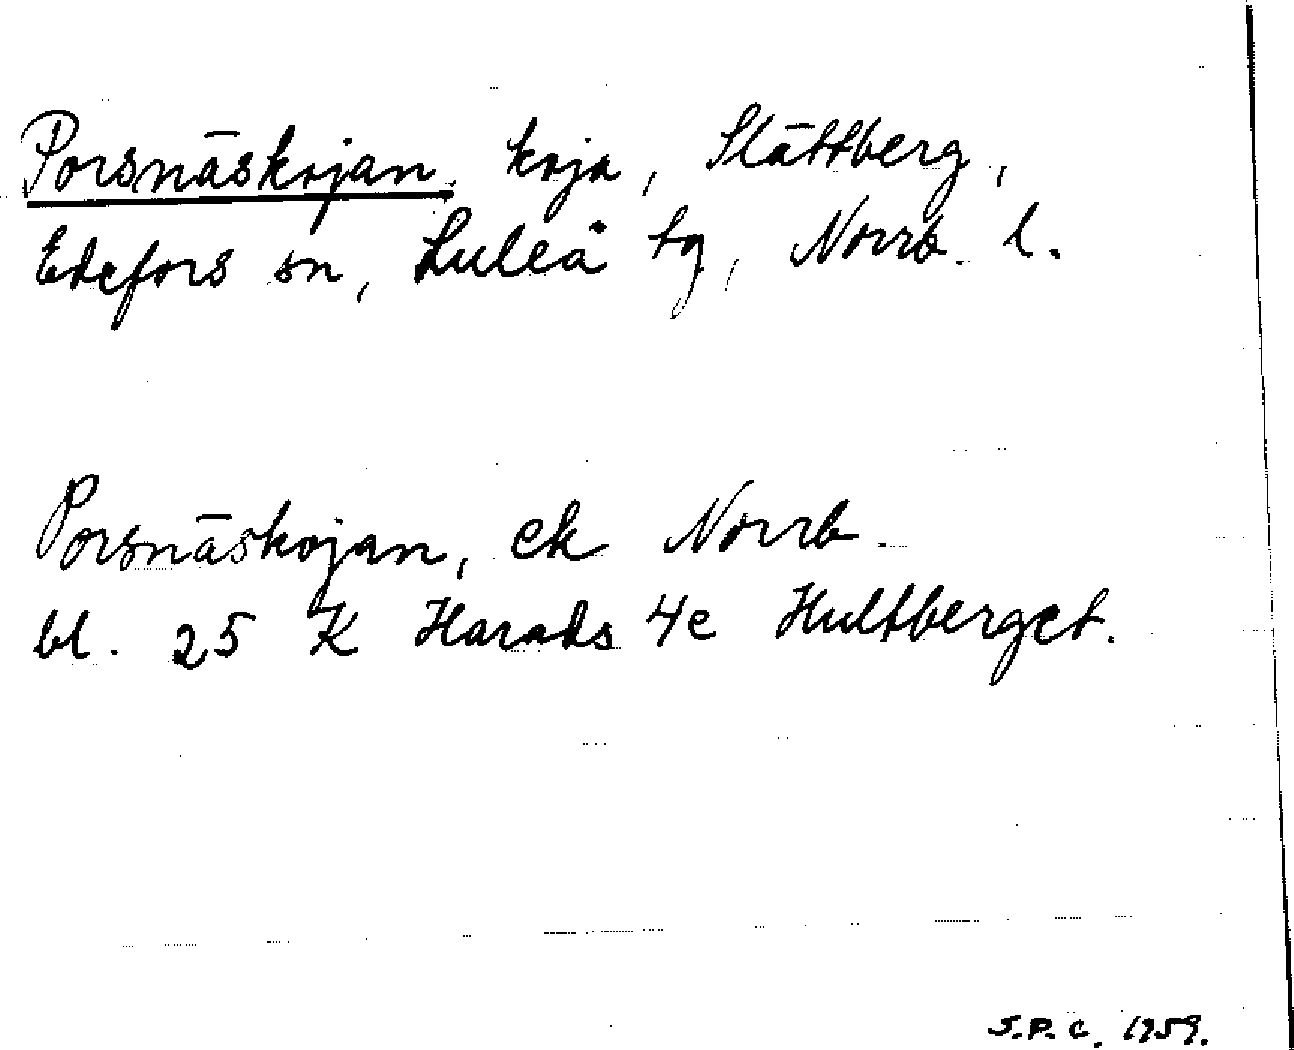 Porsnäskojan, koja, Slättberg,
Edefors sn, Luleå tg, Norrb. l.
Porsnäskojan, ek Norrb.
bl. 25 K Harads 4e Hultberget.
S.P.C. 1959.